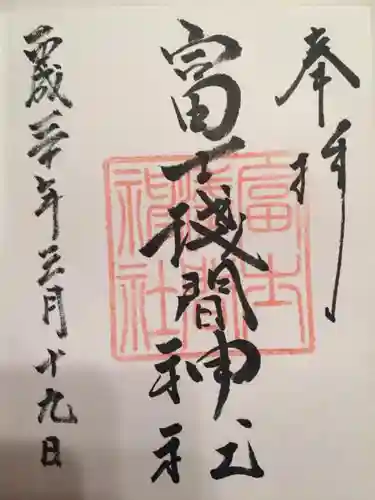 奉拝
富士浅間神社
平成三十年三月十九日
富士
浅間
神社